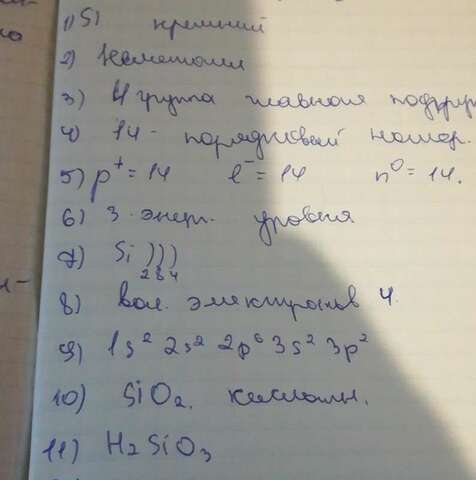 1) Si кремний
2) Неметалл
3) 4 группа главная подгруп
4) 14 - порядковый номер.
5) p⁺ = 14 e⁻ = 14 n⁰ = 14.
6) 3 энерг. уровня
7) Si ) ) )
2 8 4
8) вал. электронов 4.
9) 1s² 2s² 2p⁶ 3s² 3p²
10) SiO₂. кислотн.
11) H₂SiO₃